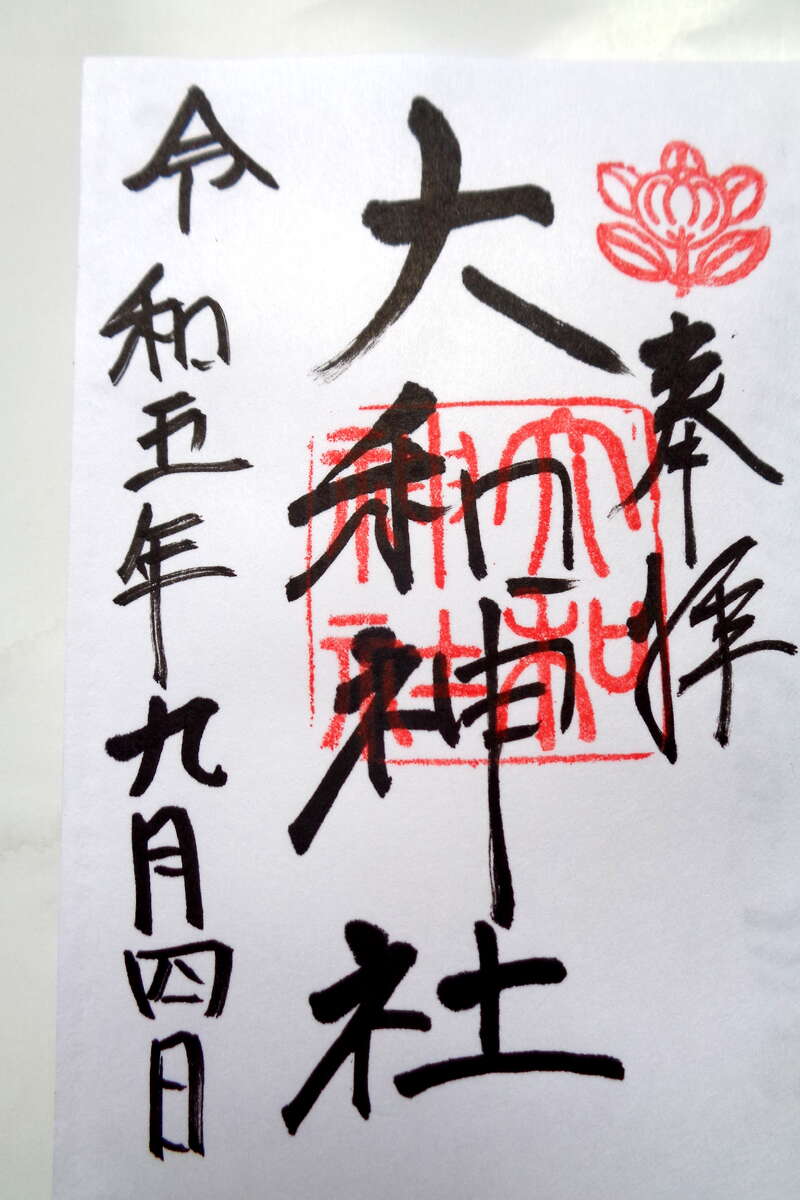 奉拝
大和神社
大和神社
令和五年九月四日